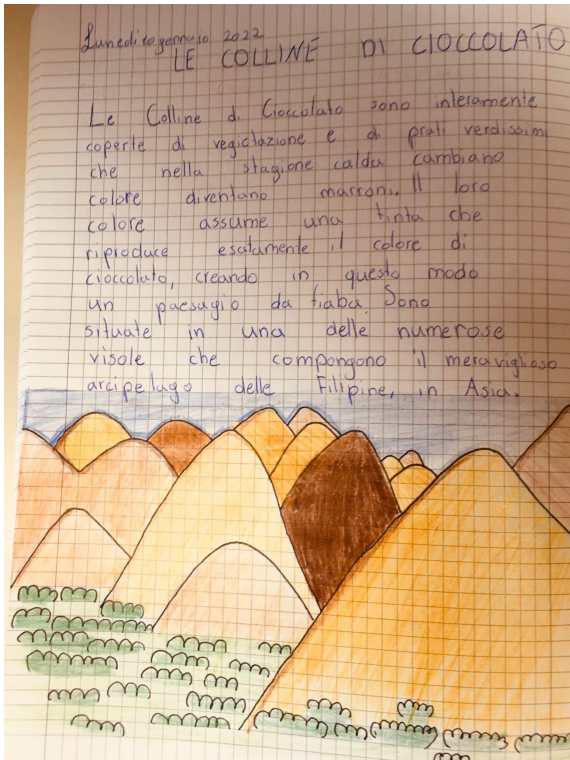 Lunedì 10 gennaio 2022
LE COLLINE DI CIOCCOLATO
Le Colline di Cioccolato sono interamente
coperte di vegictazione e di prati verdissimi
che nella stagione calda cambiano
colore diventano marroni. Il loro
colore assume una tinta che
riproduce esatamente il colore di
cioccolato, creando in questo modo
un paesagio da fiaba. Sono
situate in una delle numerose
visole che compongono il meraviglioso
arcipelago delle Filipine, in Asia.